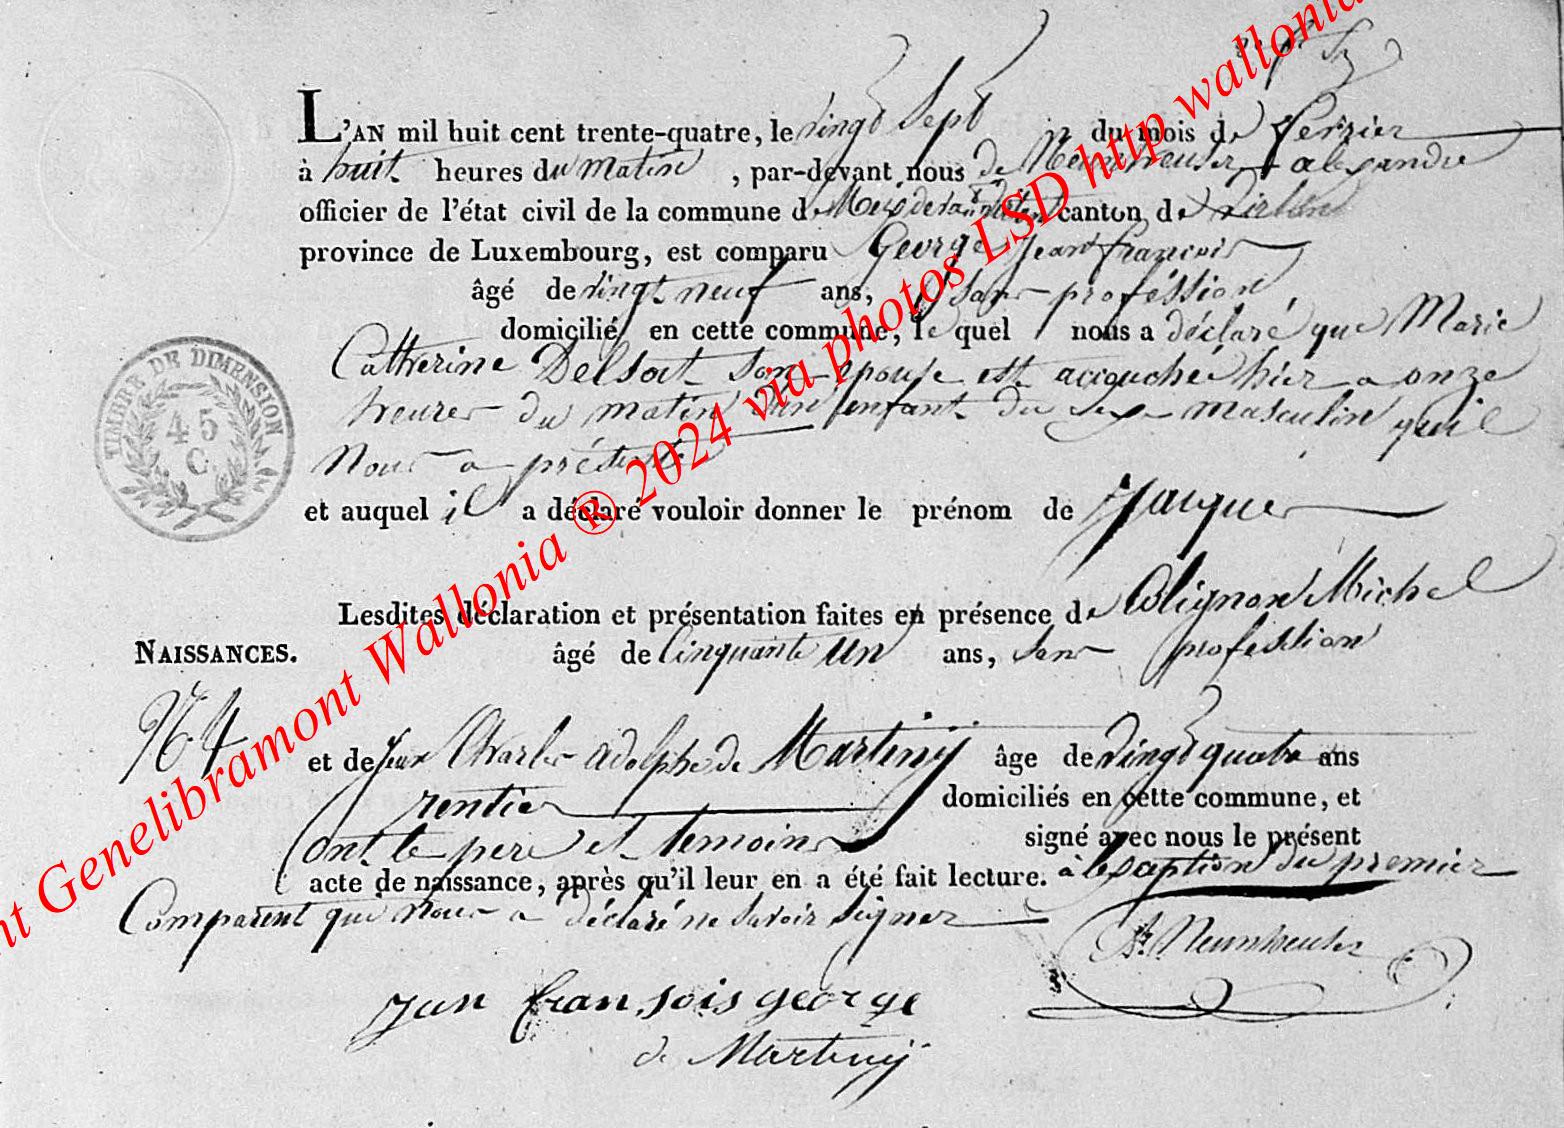 L'AN mil huit cent trente-quatre, le vingt Sept du mois de fevrier
à huit heures du matin, par-devant nous de Neunheuser alexandre
officier de l'état civil de la commune de Meix devant virton canton de Virton
province de Luxembourg, est comparu George Jean francois
âgé de vingt neuf ans, sans proféssion
domicilié en cette commune, le quel nous a déclaré que Marie
Catherine Delsat son epouse est accouchée hier a onze
heures du matin d'un enfant du sexe masculin qu'il
Nous a présenté
et auquel il a déclaré vouloir donner le prénom de Jacque
Lesdites déclaration et présentation faites en présence de Colignon Michel
NAISSANCES. âgé de Cinquante un ans, sans profession
N 4
et de Jean Charles adolphe de Martiny âge de vingt quatre ans
rentier domiciliés en cette commune, et
ont le pere et temoins signé avec nous le présent
acte de naissance, après qu'il leur en a été fait lecture. à lexeption du premier
Comparent qui nous a déclaré ne savoir signer
A. Neunheuser
Jean fransois george
de Martiny
TIMBRE DE DIMENSION
45
C.
nt Genelibramont Wallonia ® 2024 via photos LSD http wallonia